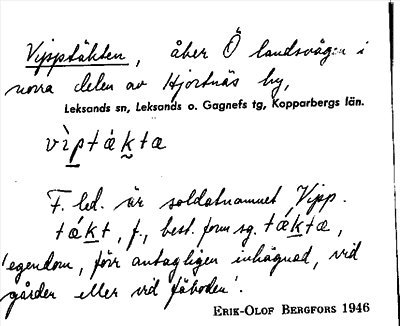 Vipptäkten, åker Ö landsvägen i
norra delen av Hjortnäs by,
Leksands sn, Leksands o. Gagnefs tg, Kopparbergs län.
vìptάkta
F. led. är soldatnamnet Vipp.
tάkt, f., best. form sg. tάkta,
'egendom, förr antagligen inhägnad, vid
gården eller vid fäboden'.
ERIK-OLOF BERGFORS 1946